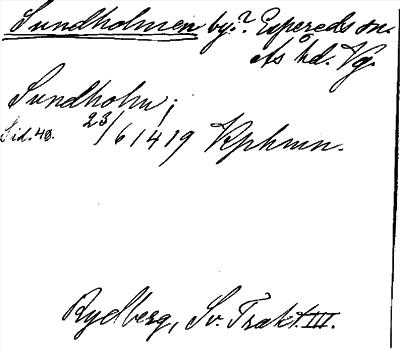 Sundholmen by.? Espereds sn.
Ås hd. Vg.
Sundholm;
Sid. 48. 23/6 1419 Kphmn.
Rydberg, Sv. Trakt. III.